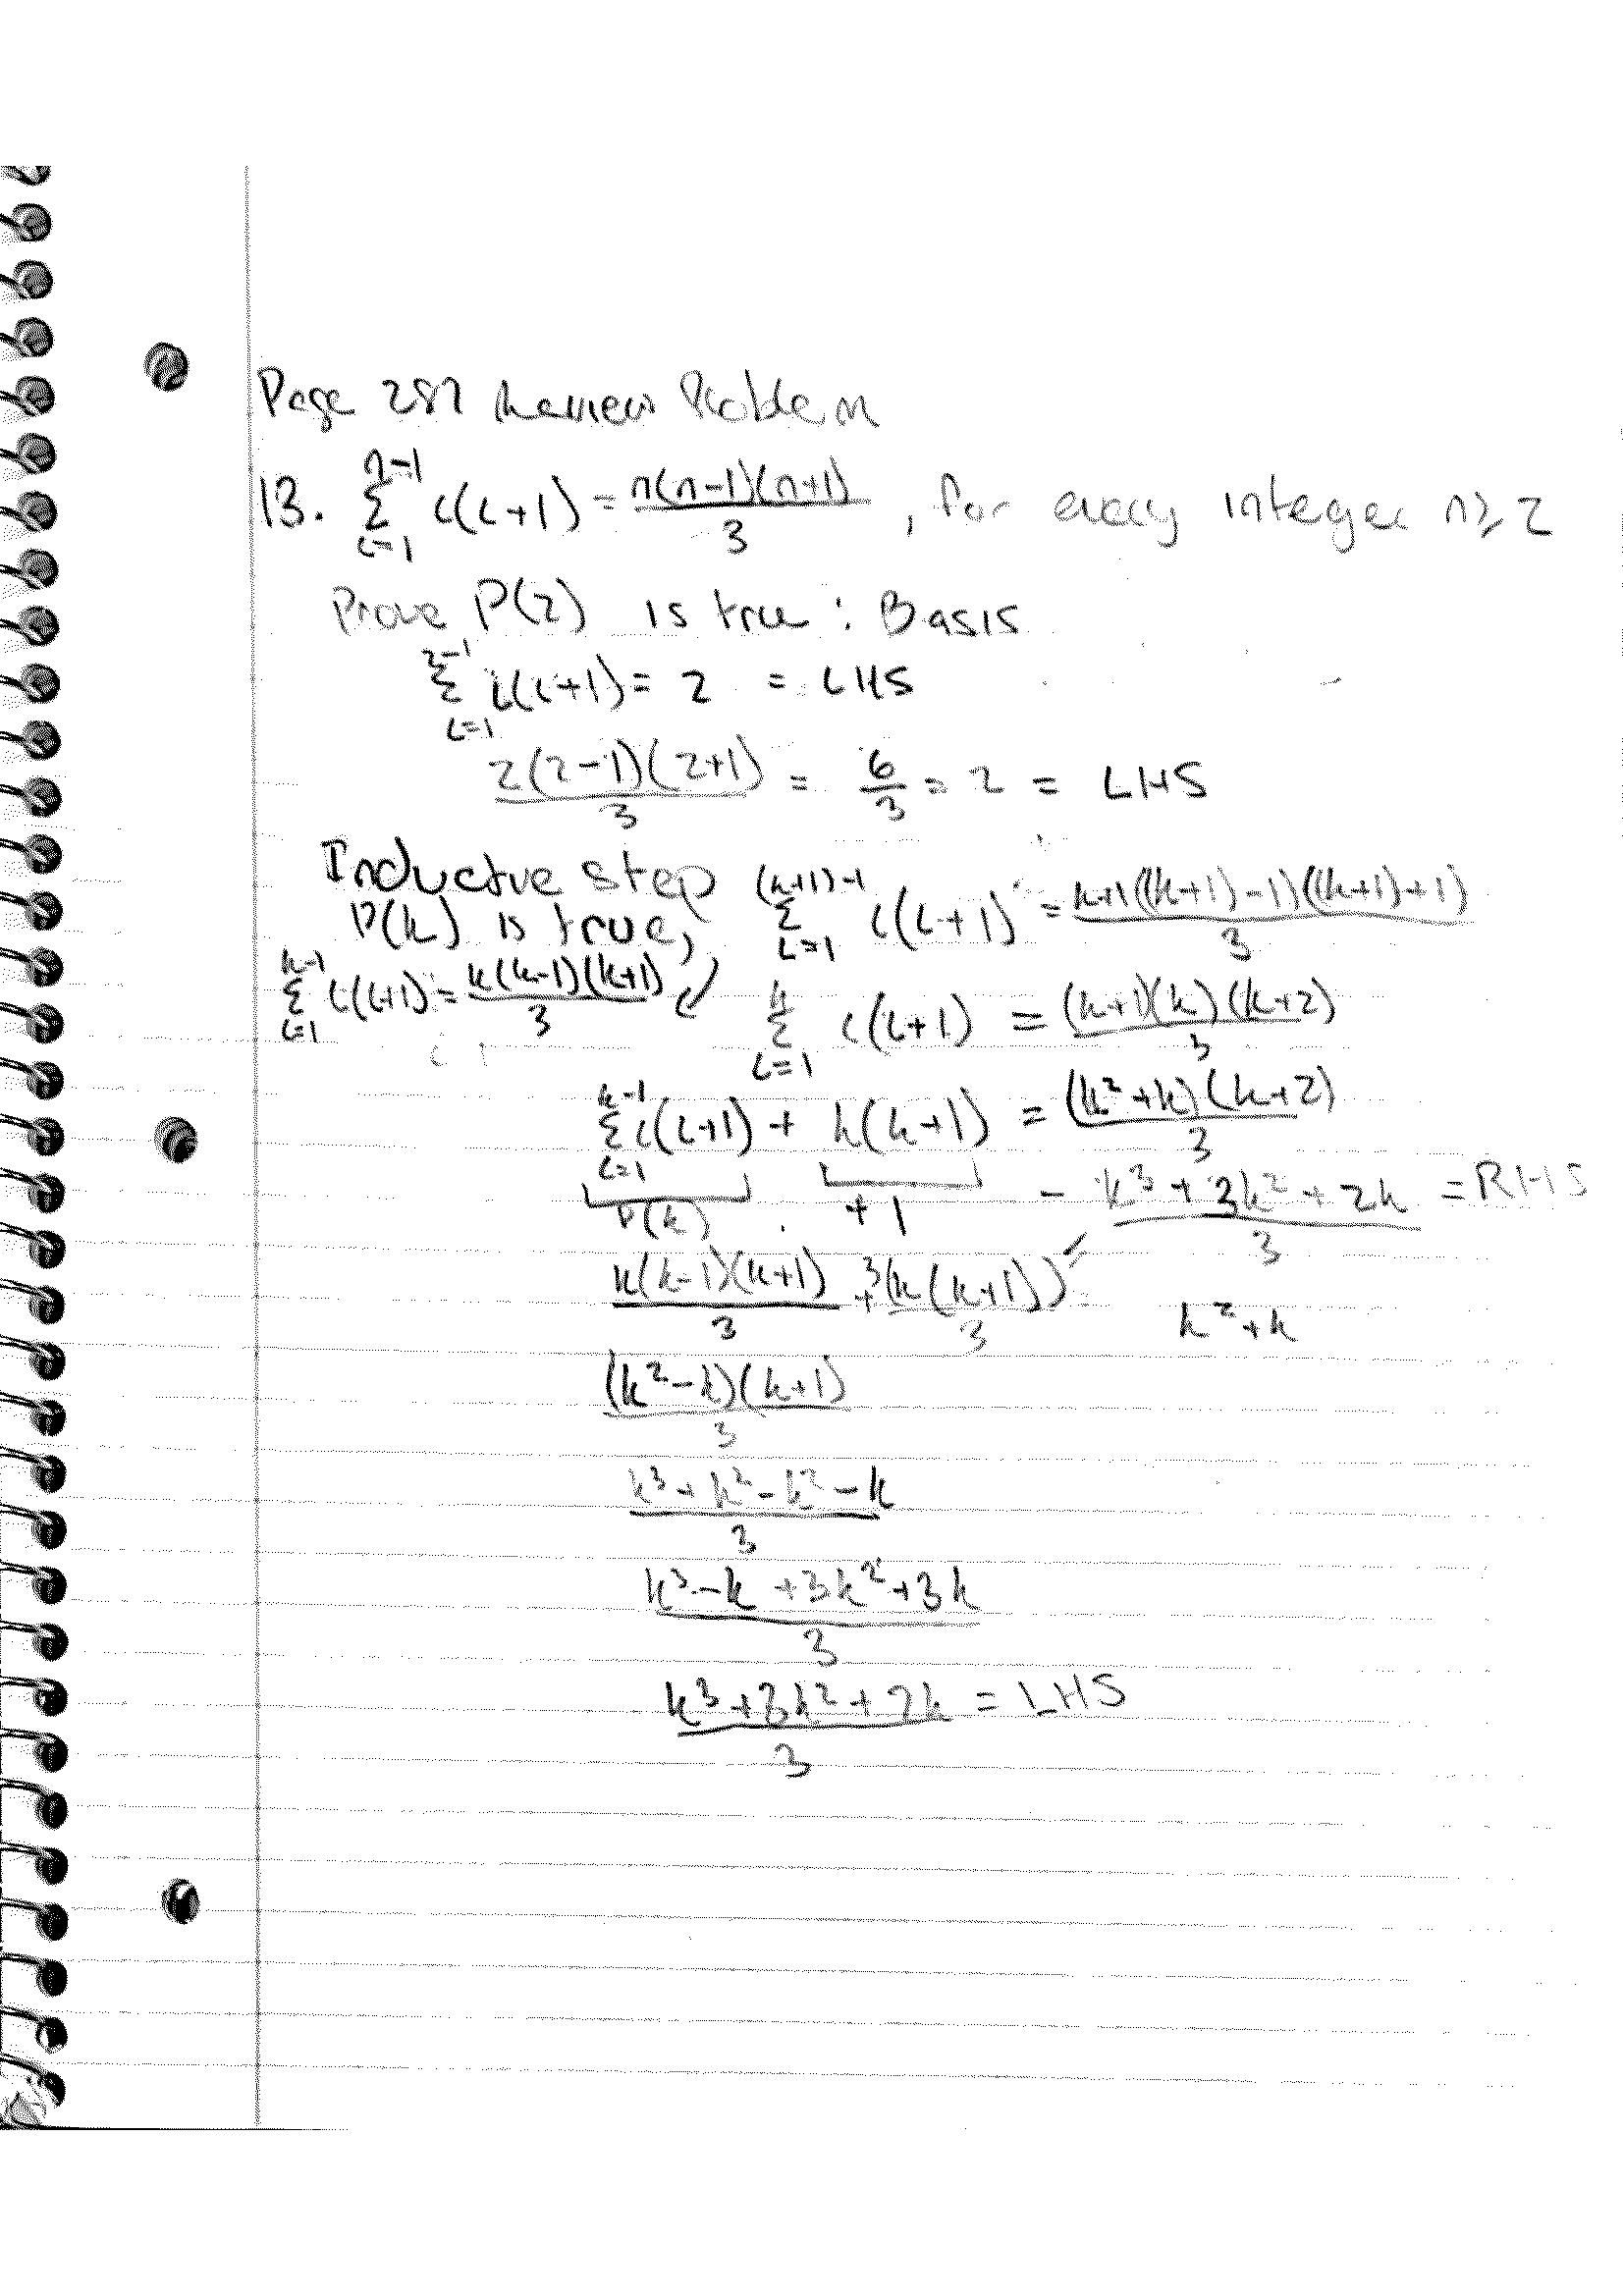 Page 287 Review Problem
13. \sum_{i=1}^{n-1} i(i+1) = \frac{n(n-1)(n+1)}{3} , for every integer n ≥ 2
Prove P(2) is true : Basis
\sum_{i=1}^{2-1} i(i+1) = 2 = LHS
\frac{2(2-1)(2+1)}{3} = \frac{6}{3} = 2 = LHS
Inductive step
P(k) is true,
\sum_{i=1}^{k-1} i(i+1) = \frac{k(k-1)(k+1)}{3}
\sum_{i=1}^{(k+1)-1} i(i+1) = \frac{k+1((k+1)-1)((k+1)+1)}{3}
\sum_{i=1}^{k} i(i+1) = \frac{(k+1)(k)(k+2)}{3}
\sum_{i=1}^{k-1} i(i+1) + k(k+1) = \frac{(k^2+k)(k+2)}{3}
P(k) +1
= \frac{k^3+3k^2+2k}{3} = RHS
\frac{k(k-1)(k+1)}{3} + \frac{3(k(k+1))}{3} =
k^2+k
\frac{(k^2-k)(k+1)}{3}
\frac{k^3+k^2-k^2-k}{3}
\frac{k^3-k+3k^2+3k}{3}
\frac{k^3+3k^2+2k}{3} = LHS